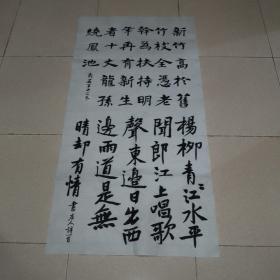 新竹高於舊
竹枝全憑老
幹為扶持明
年再有新生
者十丈龍孫
繞鳳池
楊柳青〻江水平
聞郎江上唱歌
聲東邊日出西
邊雨道是無
晴却有情 書古人詩